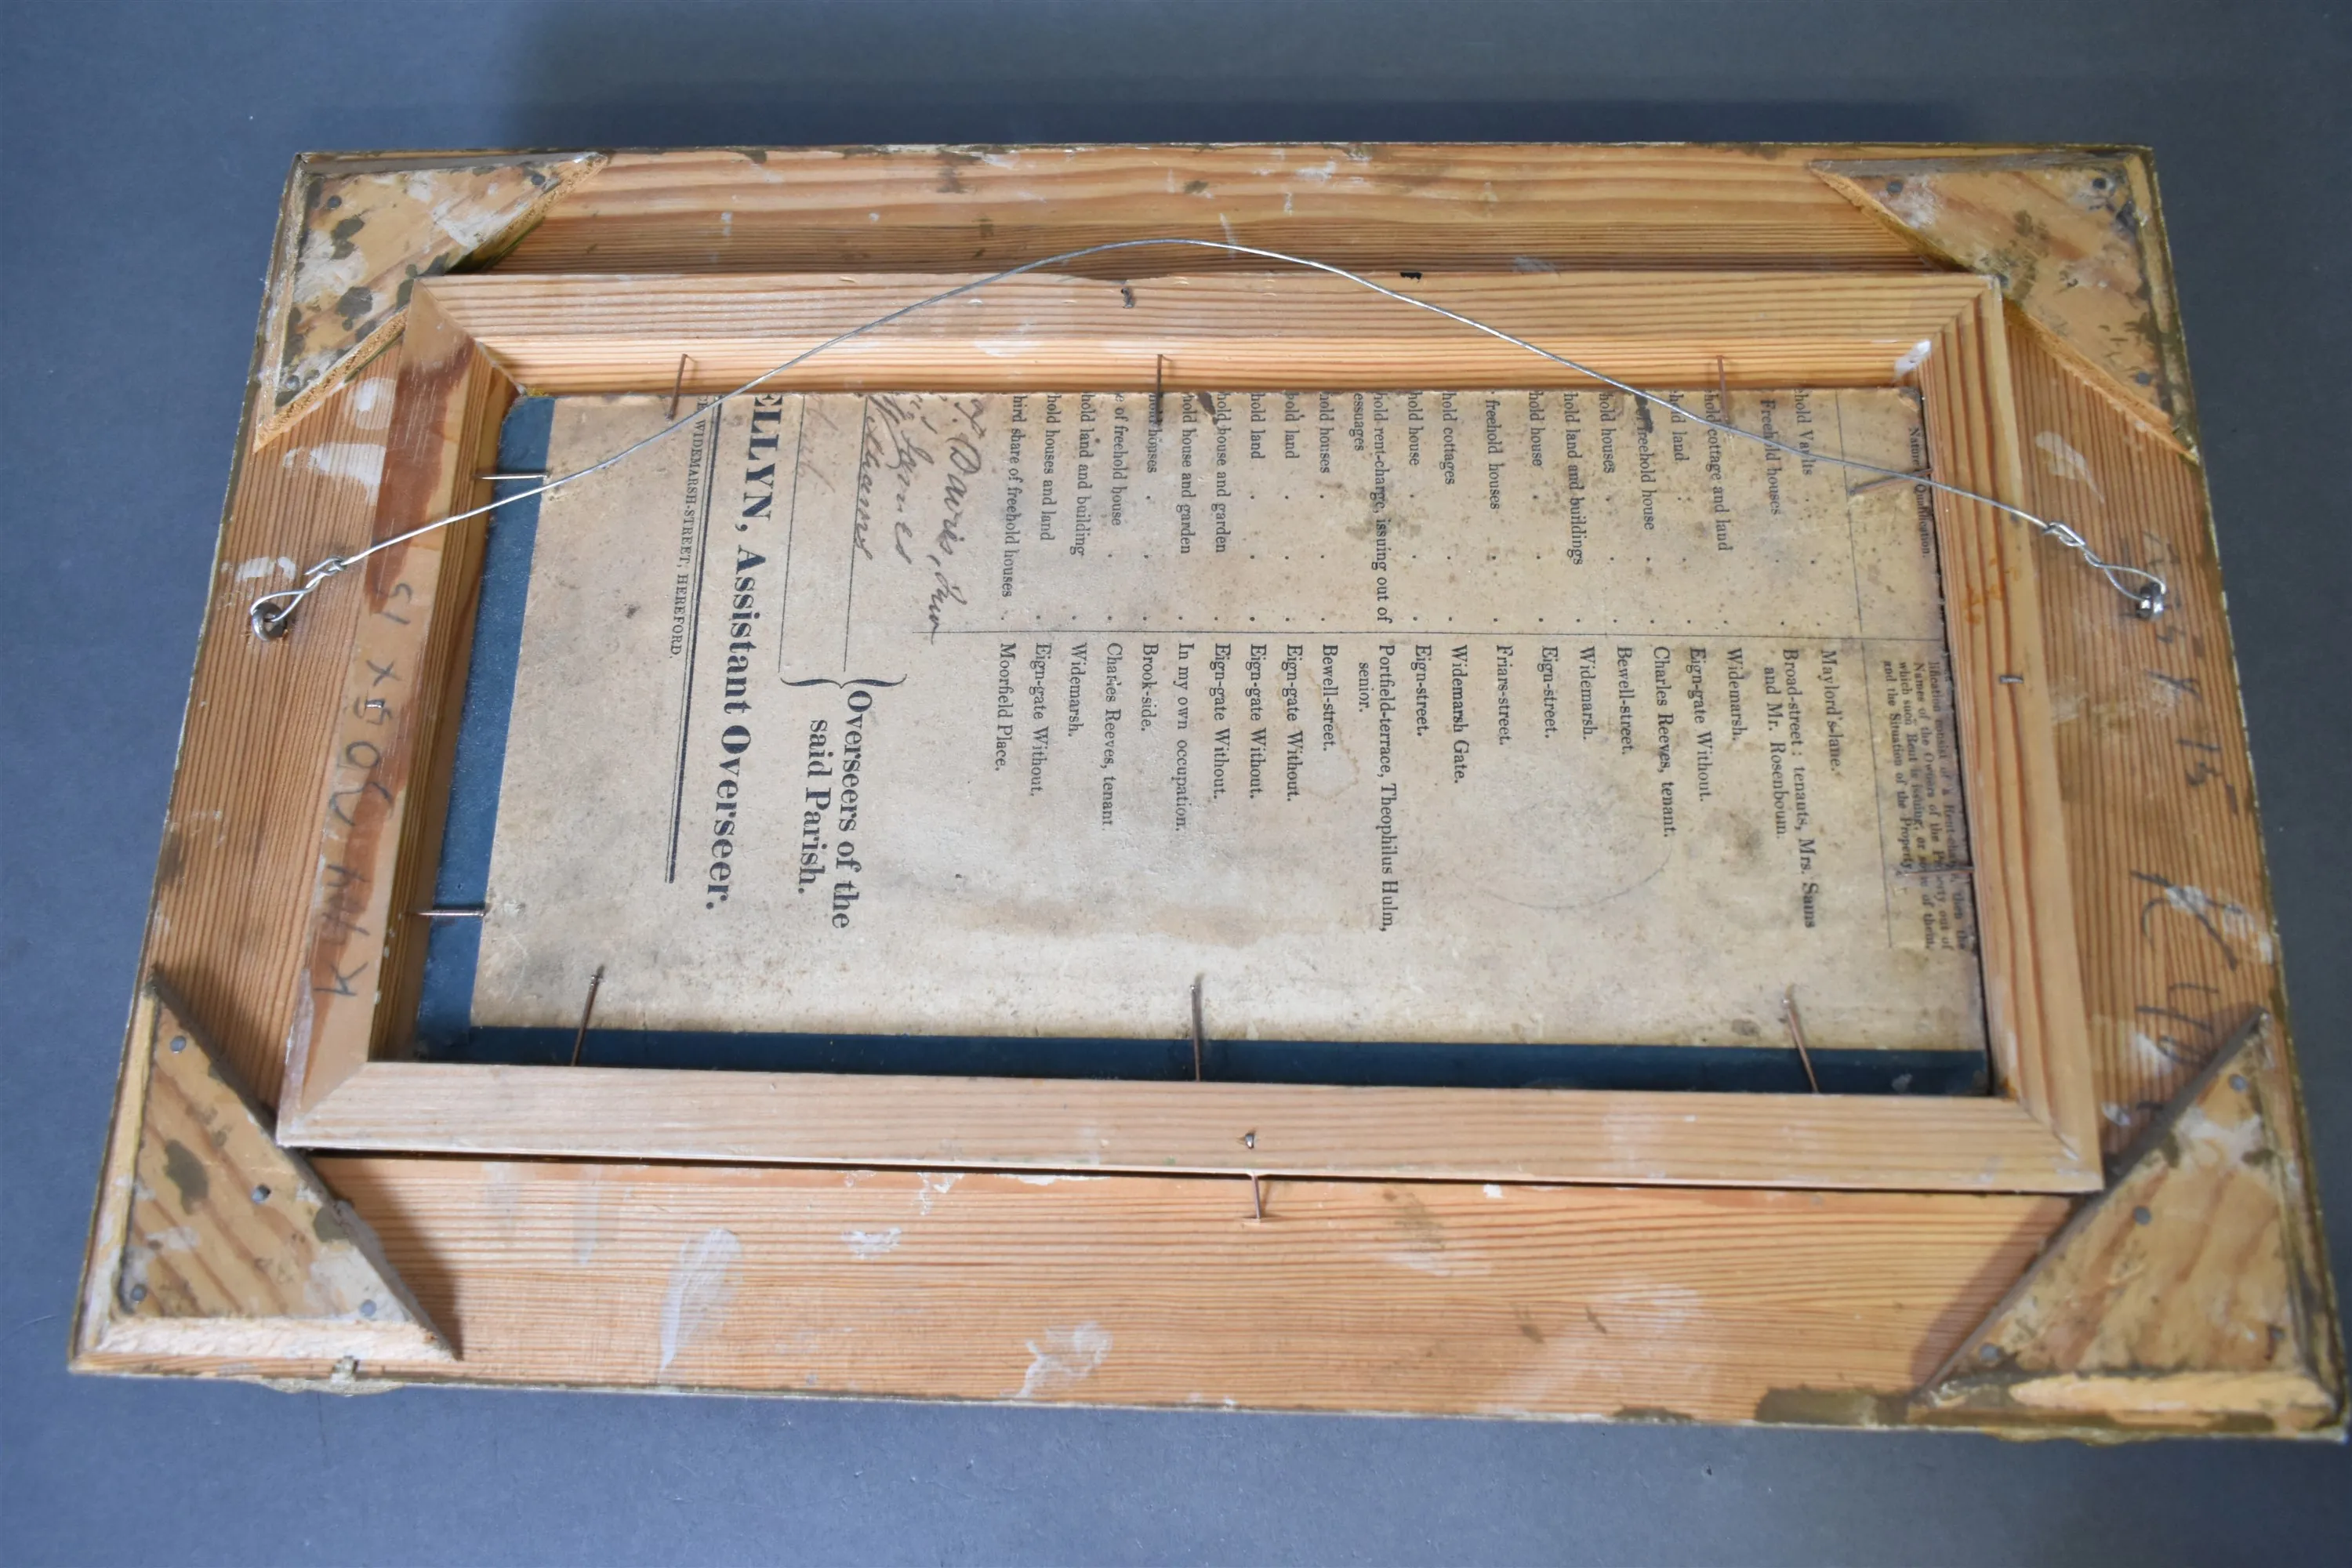 Nature Qualification.
lification consist of a Rent-charge, then the
Names of the Owners of the Property out of
which such Rent is issuing, or some of them,
and the Situation of the Property.
hold Vaults . . Maylord's-lane.
Freehold houses . . Broad-street: tenants, Mrs. Sams
and Mr. Rosenboum.
. Widemarsh.
hold cottage and land . Eign-gate Without.
hold land . . . Charles Reeves, tenant.
freehold house . . Bewell-street.
hold houses . . . Widemarsh.
hold land and buildings . Eign-street.
hold house . . .
freehold houses . . Friars-street.
hold cottages . . Widemarsh Gate.
hold house . . . Eign-street.
hold rent-charge, issuing out of Portfield-terrace, Theophilus Hulm,
essuages senior.
hold houses . . . Bewell-street.
hold land . . . Eign-gate Without.
hold land . . . Eign-gate Without.
hold house and garden . Eign-gate Without.
hold house and garden . In my own occupation.
hold houses . . . Brook-side.
e of freehold house . . Charles Reeves, tenant
hold land and building . Widemarsh.
hold houses and land . Eign-gate Without.
hird share of freehold houses . Moorfield Place.
Davies,
James
Overseers of the
said Parish.
ELLYN, Assistant Overseer.
WIDEMARSH-STREET, HEREFORD.